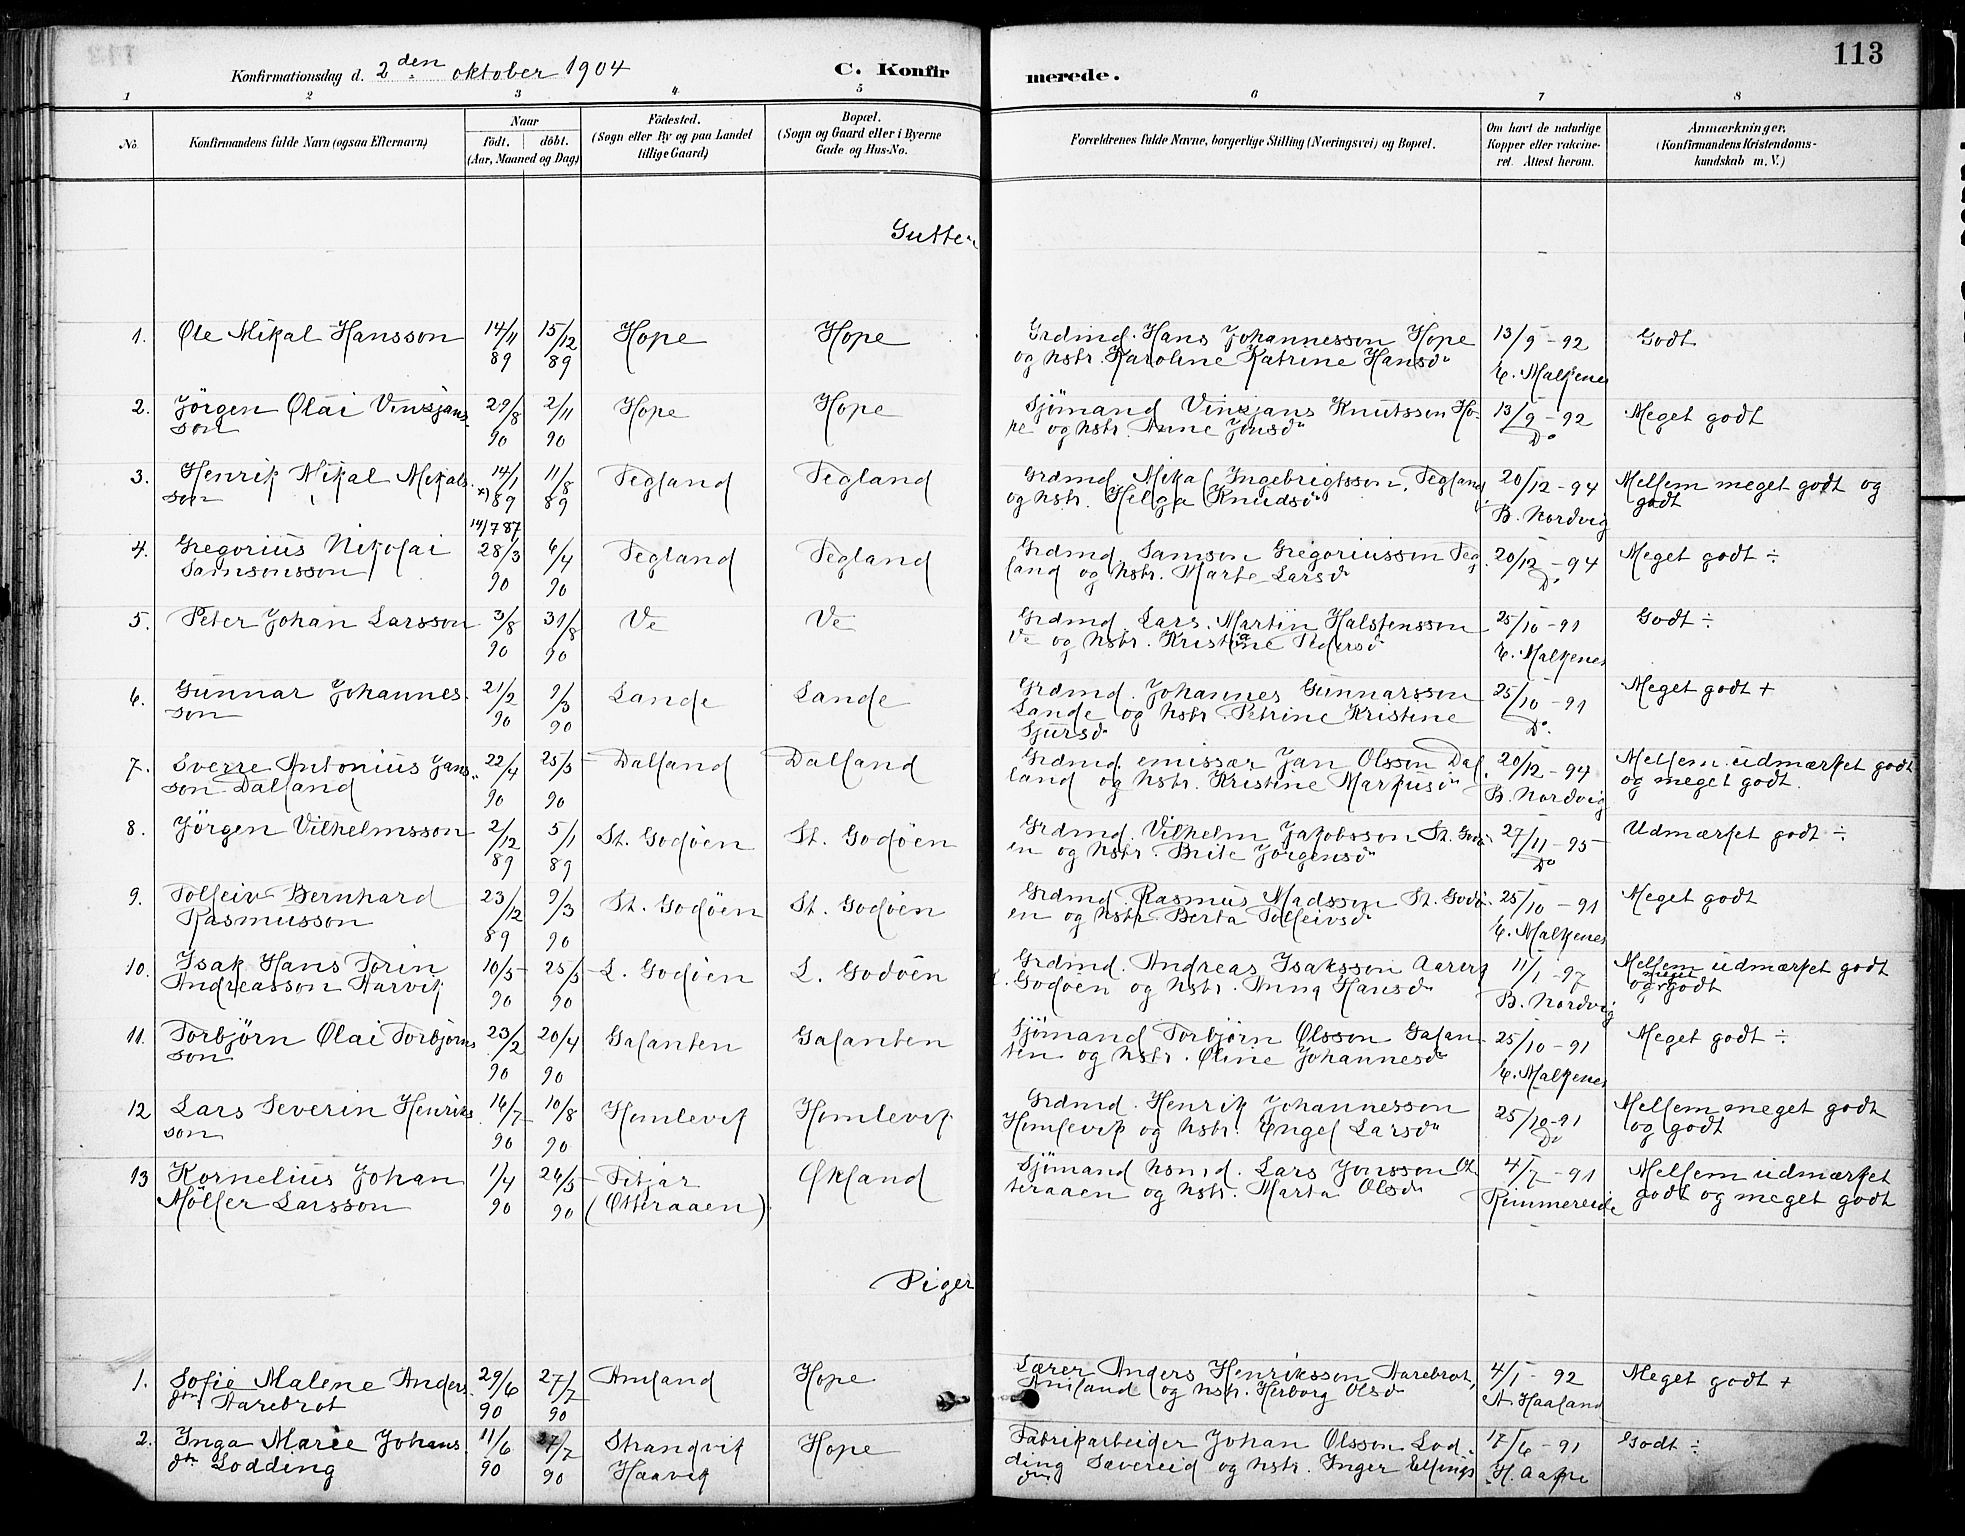 113
Konfirmationsdag d. 2den oktober 1904
C. Konfirmerede.
1 2 3 4 5 6 7 8
No. Konfirmandens fulde Navn (ogsaa Efternavn) Naar födt. döbt. (Aar, Maaned og Dag) Födested. (Sogn eller By og paa Landet tillige Gaard) Bopæl. (Sogn og Gaard eller i Byerne Gade og Hus-No. Forældrenes fulde Navne, borgerlige Stilling (Næringsvei) og Bopæl. Om havt de naturlige Kopper eller vakcineret. Attest herom. Anmærkninger. (Konfirmandens Kristendomskundskab m. V.)
Gutter
1. Ole Mikal Hansson 14/11 89 15/12 89 Hope Hope Grdmd. Hans Johannesson Hope 13/9 - 92 Godt
og hstr. Karoline Katrine Hansd. E. Malkenes
2. Jörgen Olai Vinsjans- 29/8 90 2/11 90 Hope Hope Sjömand Vinsjans Knutsson Ho- 13/9 - 92 Meget godt
son pe og hstr. Anne Jonsd. Do
3. Henrik Mikal Mikals- 14/1 x) 89 11/8 89 Tegland Tegland Grdmd. Mikal Ingebrigtsson, Tegland 20/12 - 94 Mellem meget godt og
son og hstr. Helga Knudsd. B. Nordvig godt
14/7 87
4. Gregorius Nikolai 28/3 90 6/4 90 Tegland Tegland Grdmd. Samson Gregoriusson Teg- 20/12 - 94 Meget godt ÷
Samsonsson land og hstr. Marte Larsd. Do
5. Peter Johan Larsson 3/8 90 31/8 90 Ve Ve Grdmd. Lars Martin Halstensson 25/10 - 91 Godt ÷
Ve og hstr. Kristine Pedersd. E. Malkenes
6. Gunnar Johannes- 21/2 90 9/3 90 Lande Lande Grdmd. Johannes Gunnarsson 25/10 - 91 Meget godt +
son Lande og hstr. Petrine Kristine Do
Sjursd.
7. Sverre Antonius Jans- 22/4 90 25/5 90 Dalland Dalland Grdmd. emissær Jan Olsson Dal- 20/12 - 94 Mellem udmærket godt
son Dalland land og hstr. Kristine Markusd. B. Nordvig og meget godt.
8. Jörgen Vilhelmsson 2/12 89 5/1 89 St. Godöen St. Godöen Grdmd. Vilhelm Jakobsson St. Godö- 27/11 - 95 Udmærket godt ÷
en og hstr. Brite Jörgensd. Do
9. Tolleiv Bernhard 23/12 89 9/3 90 St. Godöen St. Godöen Grdmd. Rasmus Madsson St. Godö- 25/10 - 91 Meget godt
Rasmusson en og hstr. Berta Tolleivsd. E. Malkenes
10. Isak Hans Torin 10/5 90 25/5 90 L. Godöen L. Godöen Grdmd. Andreas Isaksson 11/1 - 97 Mellem udmærket godt
Andreasson Aarvik L. Godöen og hstr. Anna Hansd. B. Nordvig og meget godt
11. Torbjörn Olai Torbjörns- 23/2 90 20/4 90 Galanten Galanten Sjömand Torbjörn Olsson Galan- 25/10 - 91 Meget godt ÷
son ten og hstr. Oline Johannesd. E. Malkenes
12 Lars Severin Henriks- 16/7 90 10/8 90 Homlevik Homlevik Grdmd. Henrik Johannesson 25/10-91 Mellem meget godt
son Homlevik og hstr. Engel Larsd. Do og godt
13 Kornelius Johan 1/4 90 26/5 90 Fitjar Økland Sjömand hsmd. Lars Jonsson Ot- 4/7 - 91 Mellem udmærket
Möller Larsson (Otteraaen) teraaen og hstr. Marta Olsd. Rimmereide godt og meget godt
Piger
1. Sofie Malene Anders- 29/6 90 27/7 90 Amland Hope Lærer Anders Henriksson Aarebrot, 4/1 - 92 Meget godt +
dtr. Aarebrot Amland og hstr. Herborg Olsd. A. Haaland
2. Inga Marie Johans- 11/6 90 27/7 90 Strandvik Hope Fabrikarbeider Johan Olsson Lod- 17/6 - 91 Godt ÷
dtr. Lodding Haavik ding Sævereid og hstr. Inger Ellings- H. Aakre